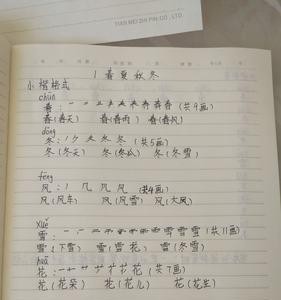 TIAN MEI ZHI PIN CO., LTD.
1 春夏秋冬
小楷格式
chūn
春: (共9画)
春(春天) 春(春雨) 春(春风)
dōng
冬: ノ ク 夂 冬 冬 (共5画)
冬(冬天) 冬(冬 冬(冬雪)
fēng
风: 几 风 风 共4画)
风(风车) 风(风雪) 风(大风)
xuě
雪: 雪 雪 (共11画)
雪(下雪) 雪(雪花) 雪(冬雪)
huā
花: 一 十 艹 花 (共7画)
花(花朵) 花(花儿) 花(花生)